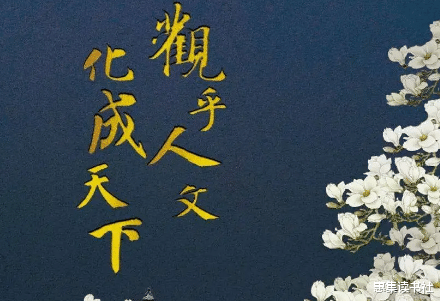 觀乎人文
化成天下
思集读书社